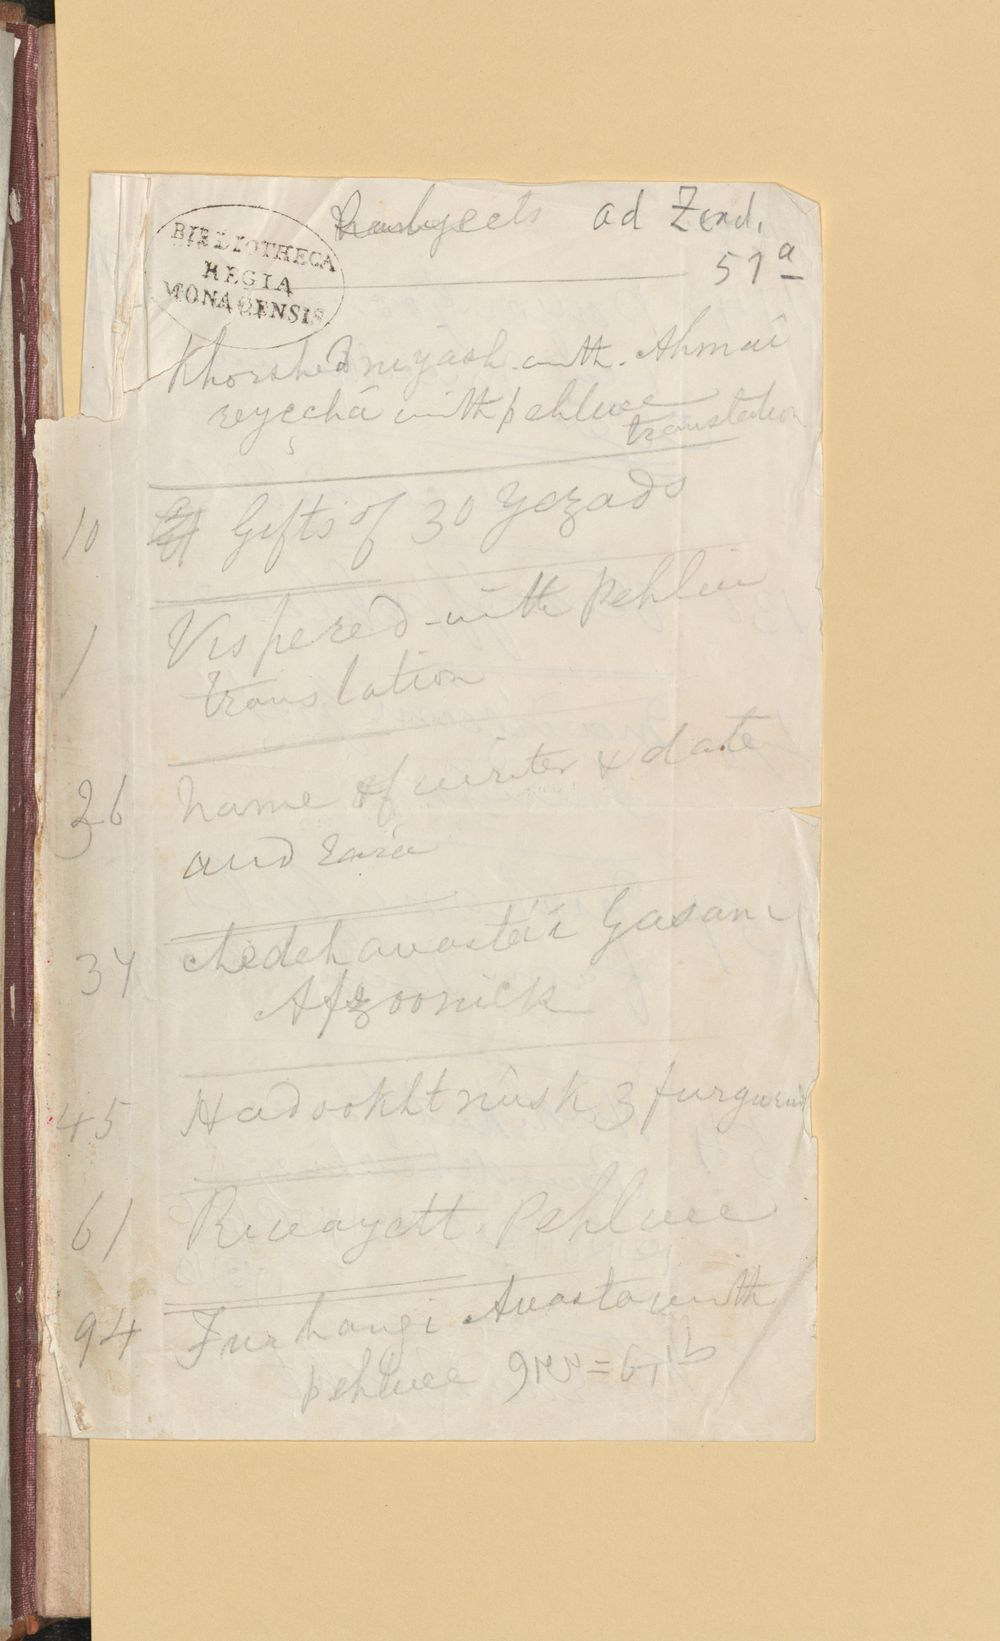 Subjects ad Zend.
51 a
BIBLIOTHECA
REGIA
MONACENSIS
Khorshed niyash with Ahmai
reyecha with pehlvee
translation
10 Gifts of 30 Yezads
1 Vispered with Pehlvi
translation
26 name of writer & date
and
37 chedeh avastai Gasani
Afzoonick
45 Hadookht nusk 3 furgurud
61 Rivayett. Pehlvee
94 Furhangi Avasta with
pehlvee